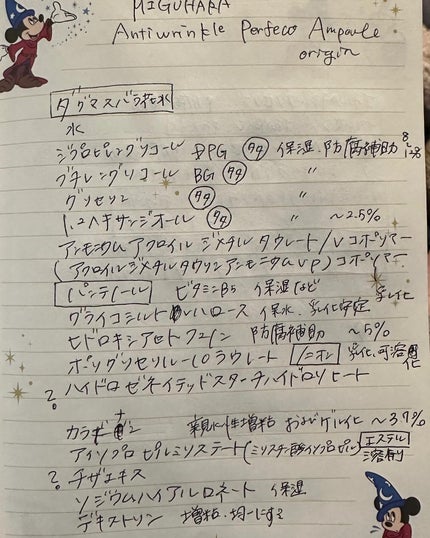 MIGUHARA
Antiwrinkle Perfeco Ampoule
origin
ダグマスバラ花水
水
ジプロピレングリコール DPG タタ 保湿、防腐補助 8
ブチレングリコール BG タタ 〃
グリセリン タタ
1.2ヘキサンジオール タタ 〃 ～2.5%
アンモニウム アクロイル ジメチル タウレート/Vコポリマー
(アクロイルジメチル タウリンアンモニウムVP)コポリマー
パンテノール ビタミンB5 保湿など 乳化
グライコシルトレハロース 保水、乳化安定
ヒドロキシアセトフェノン 防腐補助 ～5%
ポリグリセリルー10ラウレート ノニオン 乳化、可溶化
? ハイドロゼネイテッドスターチハイドロリヒート
カラギナン 親水性増粘 およびゲル化 ～3.7%
アイソプロピルミリステート(ミリスチン酸イソプロピル) エステル
溶剤
? チザエキス
ソジウムハイアルロネート 保湿
デキストリン 増粘、均一にする